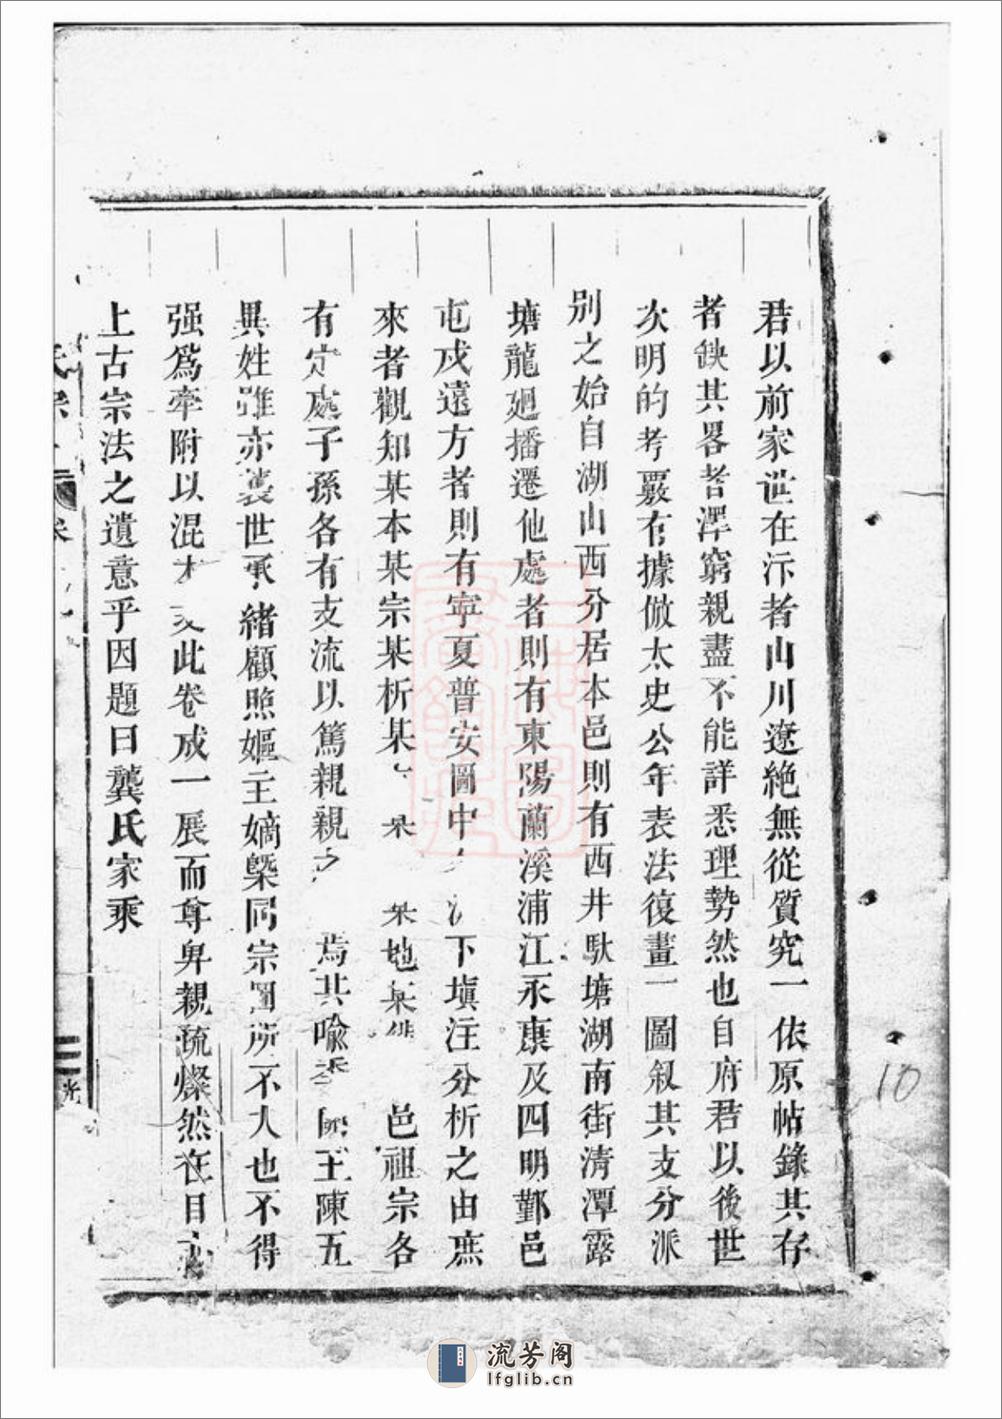 君以前家世在汴者山川遼絶無從質究一依原帖錄其存
者缺其畧者澤窮親盡不能詳悉理勢然也自府君以後世
次明的考覈有據倣太史公年表法復畫一圖叙其支分派
别之始自湖山西分居本邑則有西井馱塘湖南街清潭露
塘龍廻播遷他處者則有東陽蘭溪浦江永康及四明鄞邑
屯戍遠方者則有寧夏普安圖中下塡注分析之由庶
來者觀知某本某宗某析某某地某邑祖宗各
有定處子孫各有支流以篤親親之焉其喩王陳五
異姓雖亦襲世承緒顧照嫗主嫡槩同宗圖所不入也不得
强爲牽附以混此卷成一展而尊卑親疏燦然在目
上古宗法之遺意乎因題曰龔氏家乘
氏宗
卷
三
光
10
流芳阁
lfglib.cn